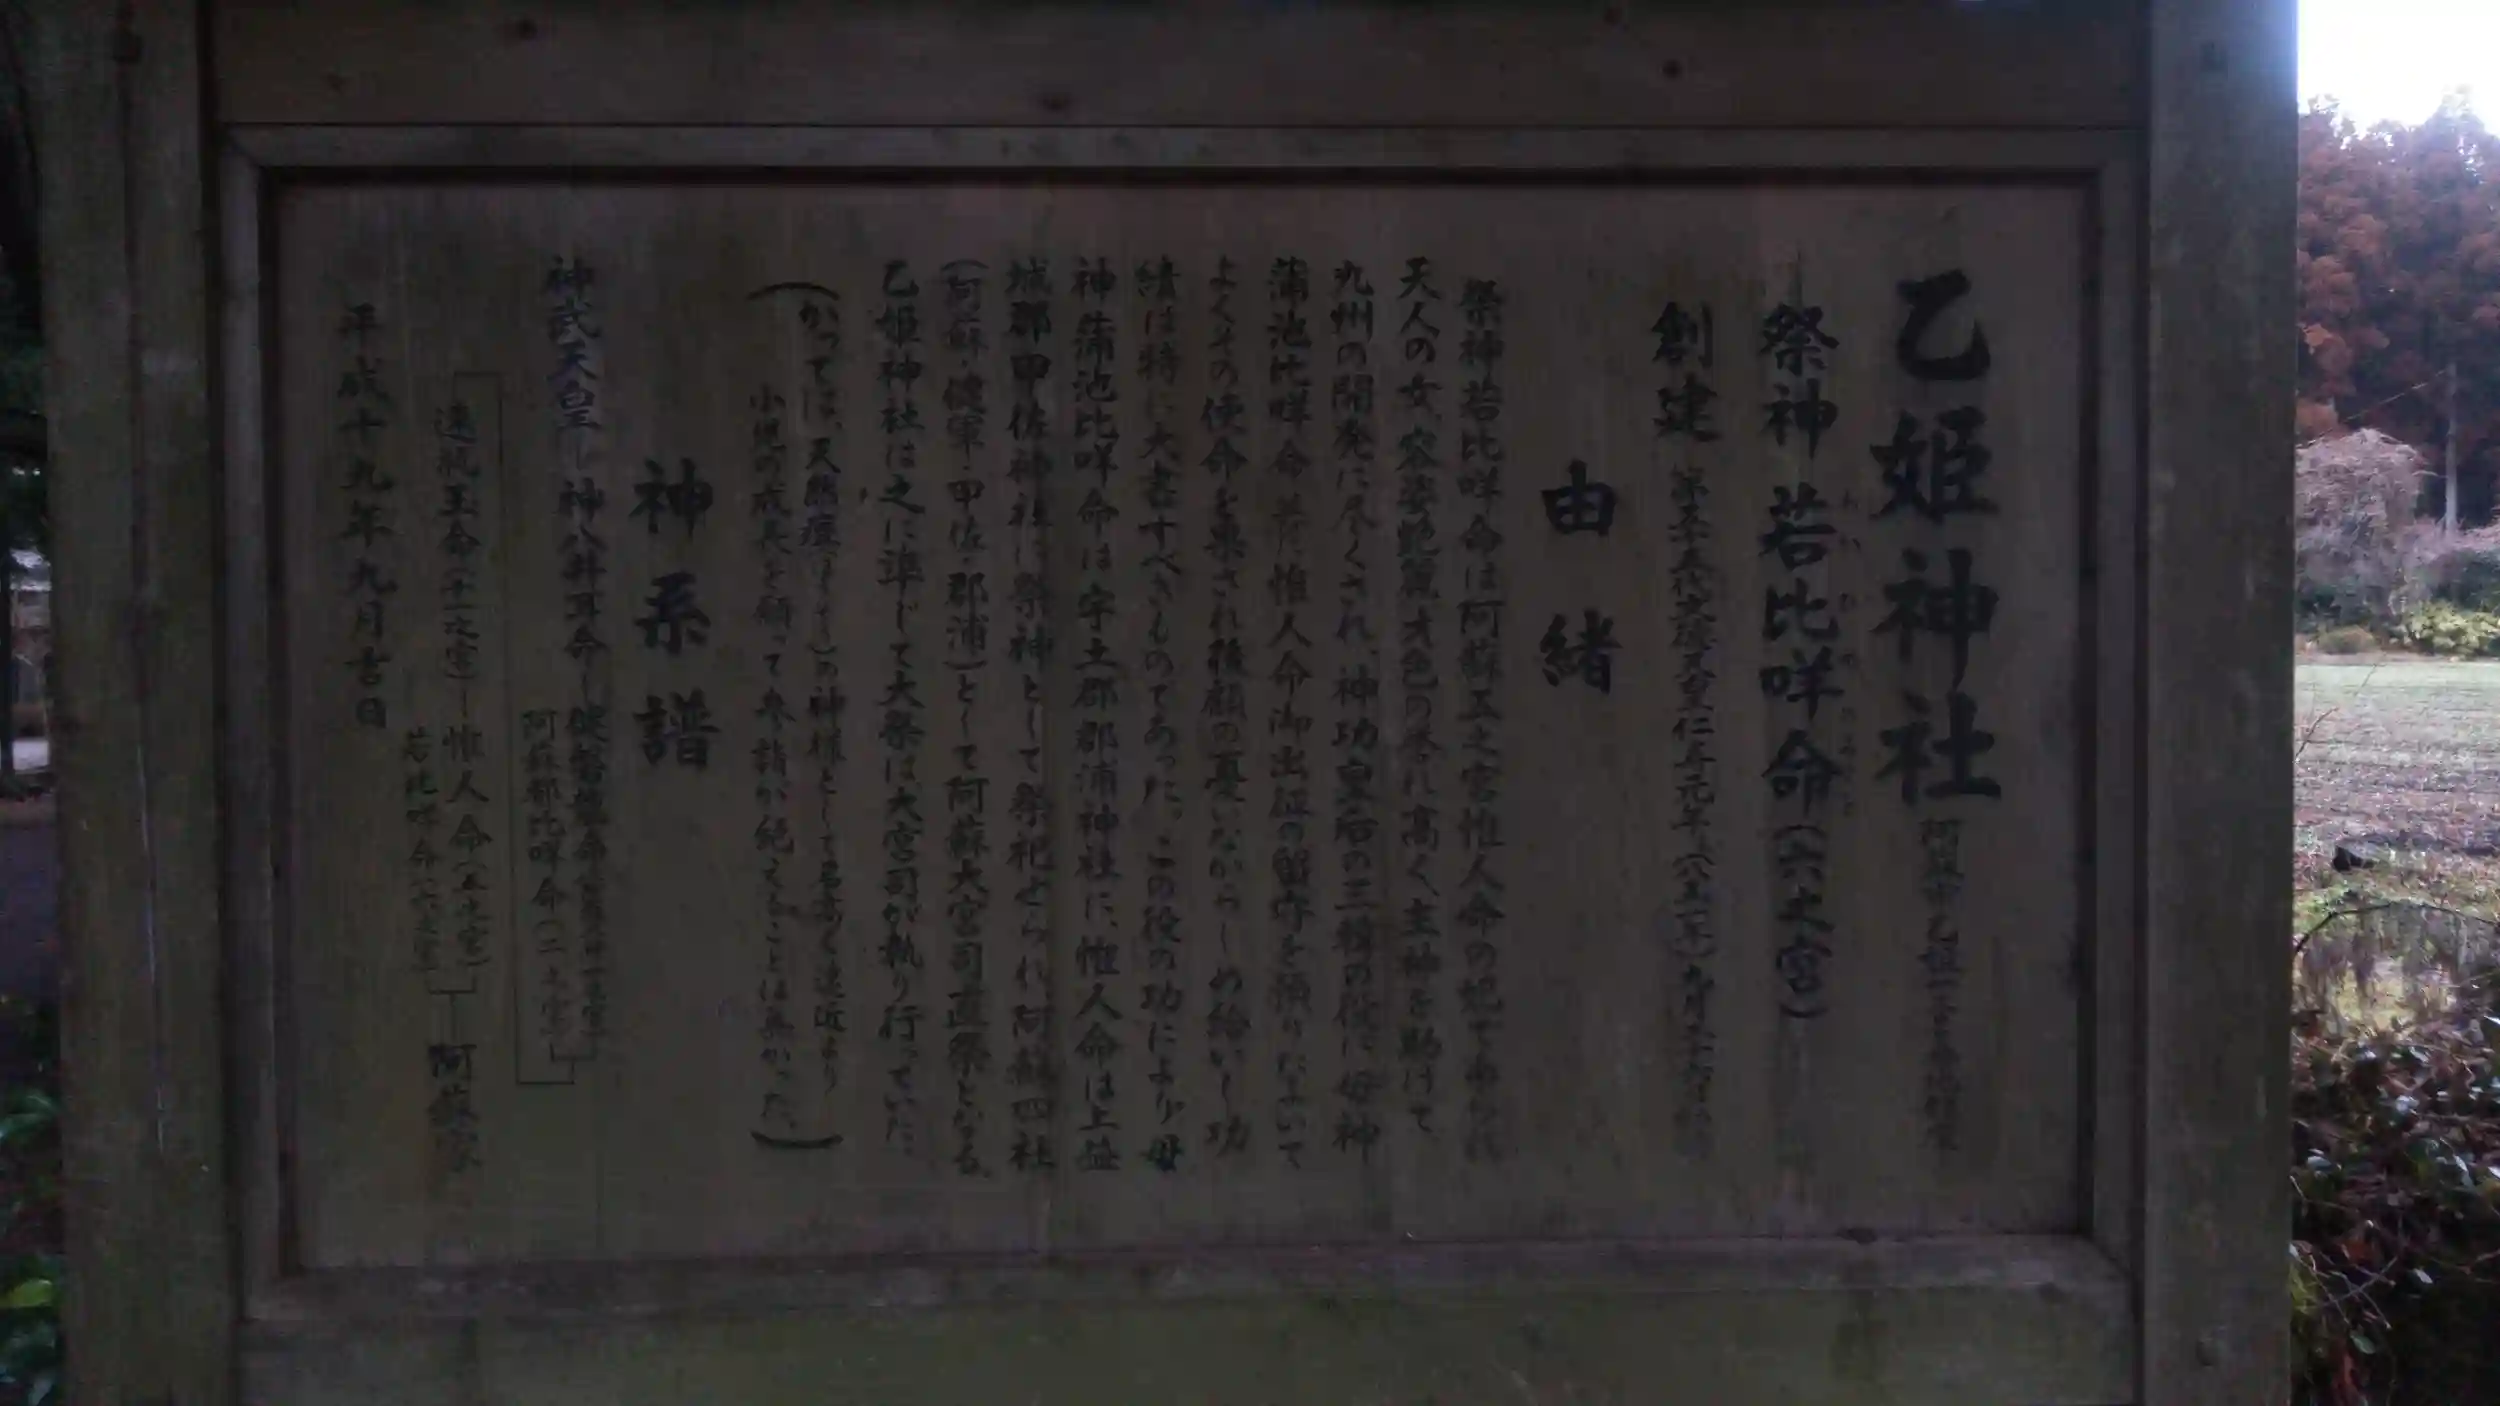 乙姫神社
祭神 若比咩命(六之宮)
創建
由緒
祭神若比咩命は阿蘇五之宮惟人命の妃であられ
天人の女、容姿艶麗才色の誉れ高く主神を助けて、
九州の開発に尽くされ、神功皇后の三韓の役に、母神
蒲池比咩命 惟人命御出征の留守を預りたまいて
よくその使命を果され後顧の憂いながらしめ給いし功
績は特に大書すべきものであった。この役の功により母
神蒲池比咩命は宇土郡郡浦神社に、惟人命は上益
城郡甲佐神社に祭神として祭祀せられ阿蘇四社
(阿蘇・健軍・甲佐・郡浦)として阿蘇大宮司直祭となる。
乙姫神社は之に準じて大祭は大宮司が執り行っていた。
(かっては、天然痘 の神様として名高く遠近より
小児の成長を願って参詣が絶えることは無かった。)
神系譜
神武天皇 神八井耳命 健磐龍命
阿蘇都比咩命(二之宮)
速瓶玉命(十一之宮) 惟人命(五之宮)
若比咩命(六之宮)
阿蘇家
平成十九年九月吉日